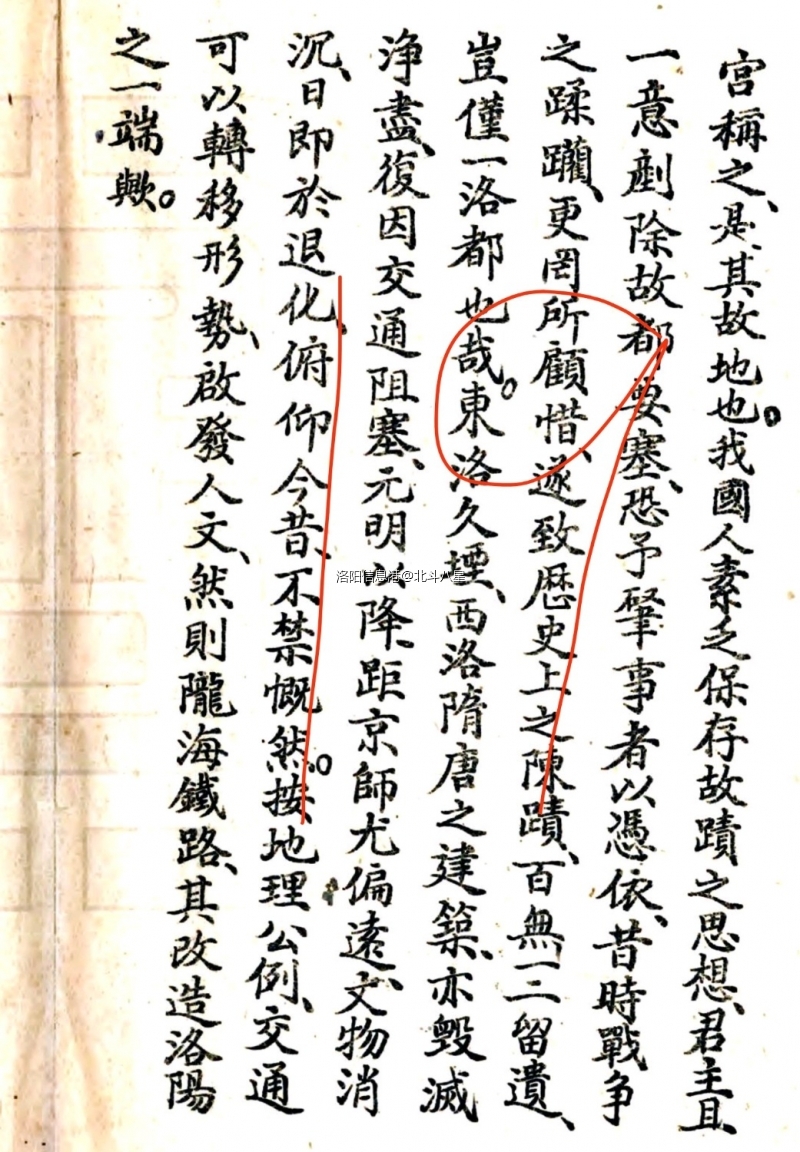 宮稱之、是其故地也。我國人素乏保存故蹟之思想、君主且
一意剷除故都要塞、恐予肇事者以憑依、昔時戰爭
之蹂躪、更罔所顧惜、遂致歷史上之陳蹟、百無一二留遺、
豈僅一洛都也哉。東洛久堙、西洛隋唐之建築、亦毀滅
淨盡、復因交通阻塞、元明以降、距京師尤偏遠、文物消
沉、日即於退化、俯仰今昔、不禁慨然。按、地理公例、交通
可以轉移形勢、啟發人文、然則隴海鐵路、其改造洛陽
之一端歟。
洛阳信息港@北斗八星